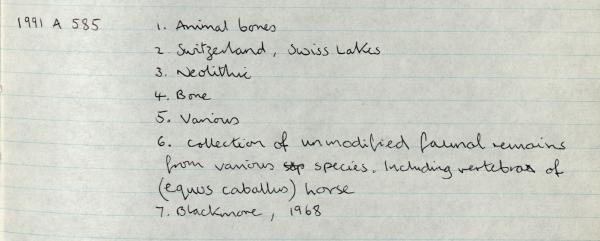 1991 A 585 1. Animal bones
2 Switzerland, Swiss Lakes
3. Neolithic
4. Bone
5. Various
6. Collection of unmodified faunal remains
from various species. Including vertebras of
(equus caballus) horse
7. Blackmore, 1968